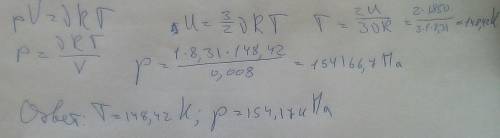 pV = νRT
U = 3/2 νRT
T = 2U/3νR = 2·1850/3·1·8,31 = 148,42 K
p = νRT/V
p = 1·8,31·148,42/0,008 = 154166,7 Па
Ответ: T = 148,42 K; p = 154,17 кПа